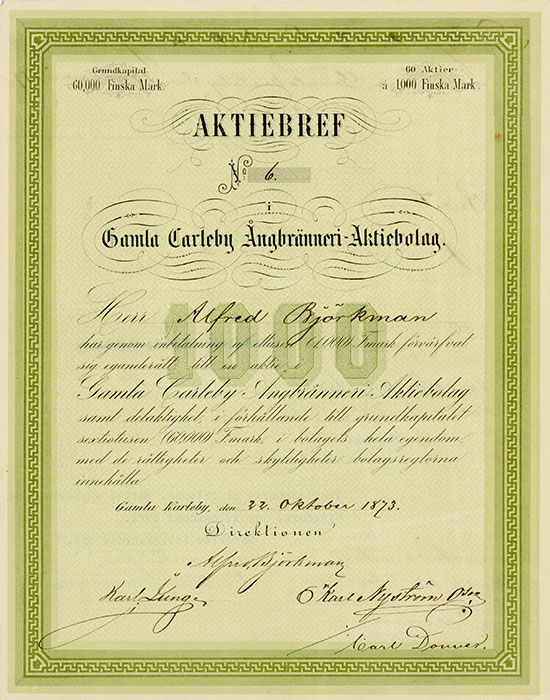 Grundkapital
60,000 Finska Mark.
60 Aktier
à 1,000 Finska Mark.
AKTIEBREF
No: 6.
i
Gamla Carleby Ångbränneri-Aktiebolag.
1000
Herr Alfred Björkman
har genom inbetalning af ettusen (1,000) Fmark förvärfvat
sig eganderätt till en aktie i
Gamla Carleby Ångbränneri Aktiebolag
samt delaktighet, i förhållande till grundkapitalet
sextiotusen (60,000) Fmark, i bolagets hela egendom,
med de rättigheter och skyldigheter bolagsreglorna
innehålla.
Gamla Karleby, den 22. Oktober 1873.
Direktionen
Alfred Björkman
Karl Junge
Karl Nyström
Carl Donner.